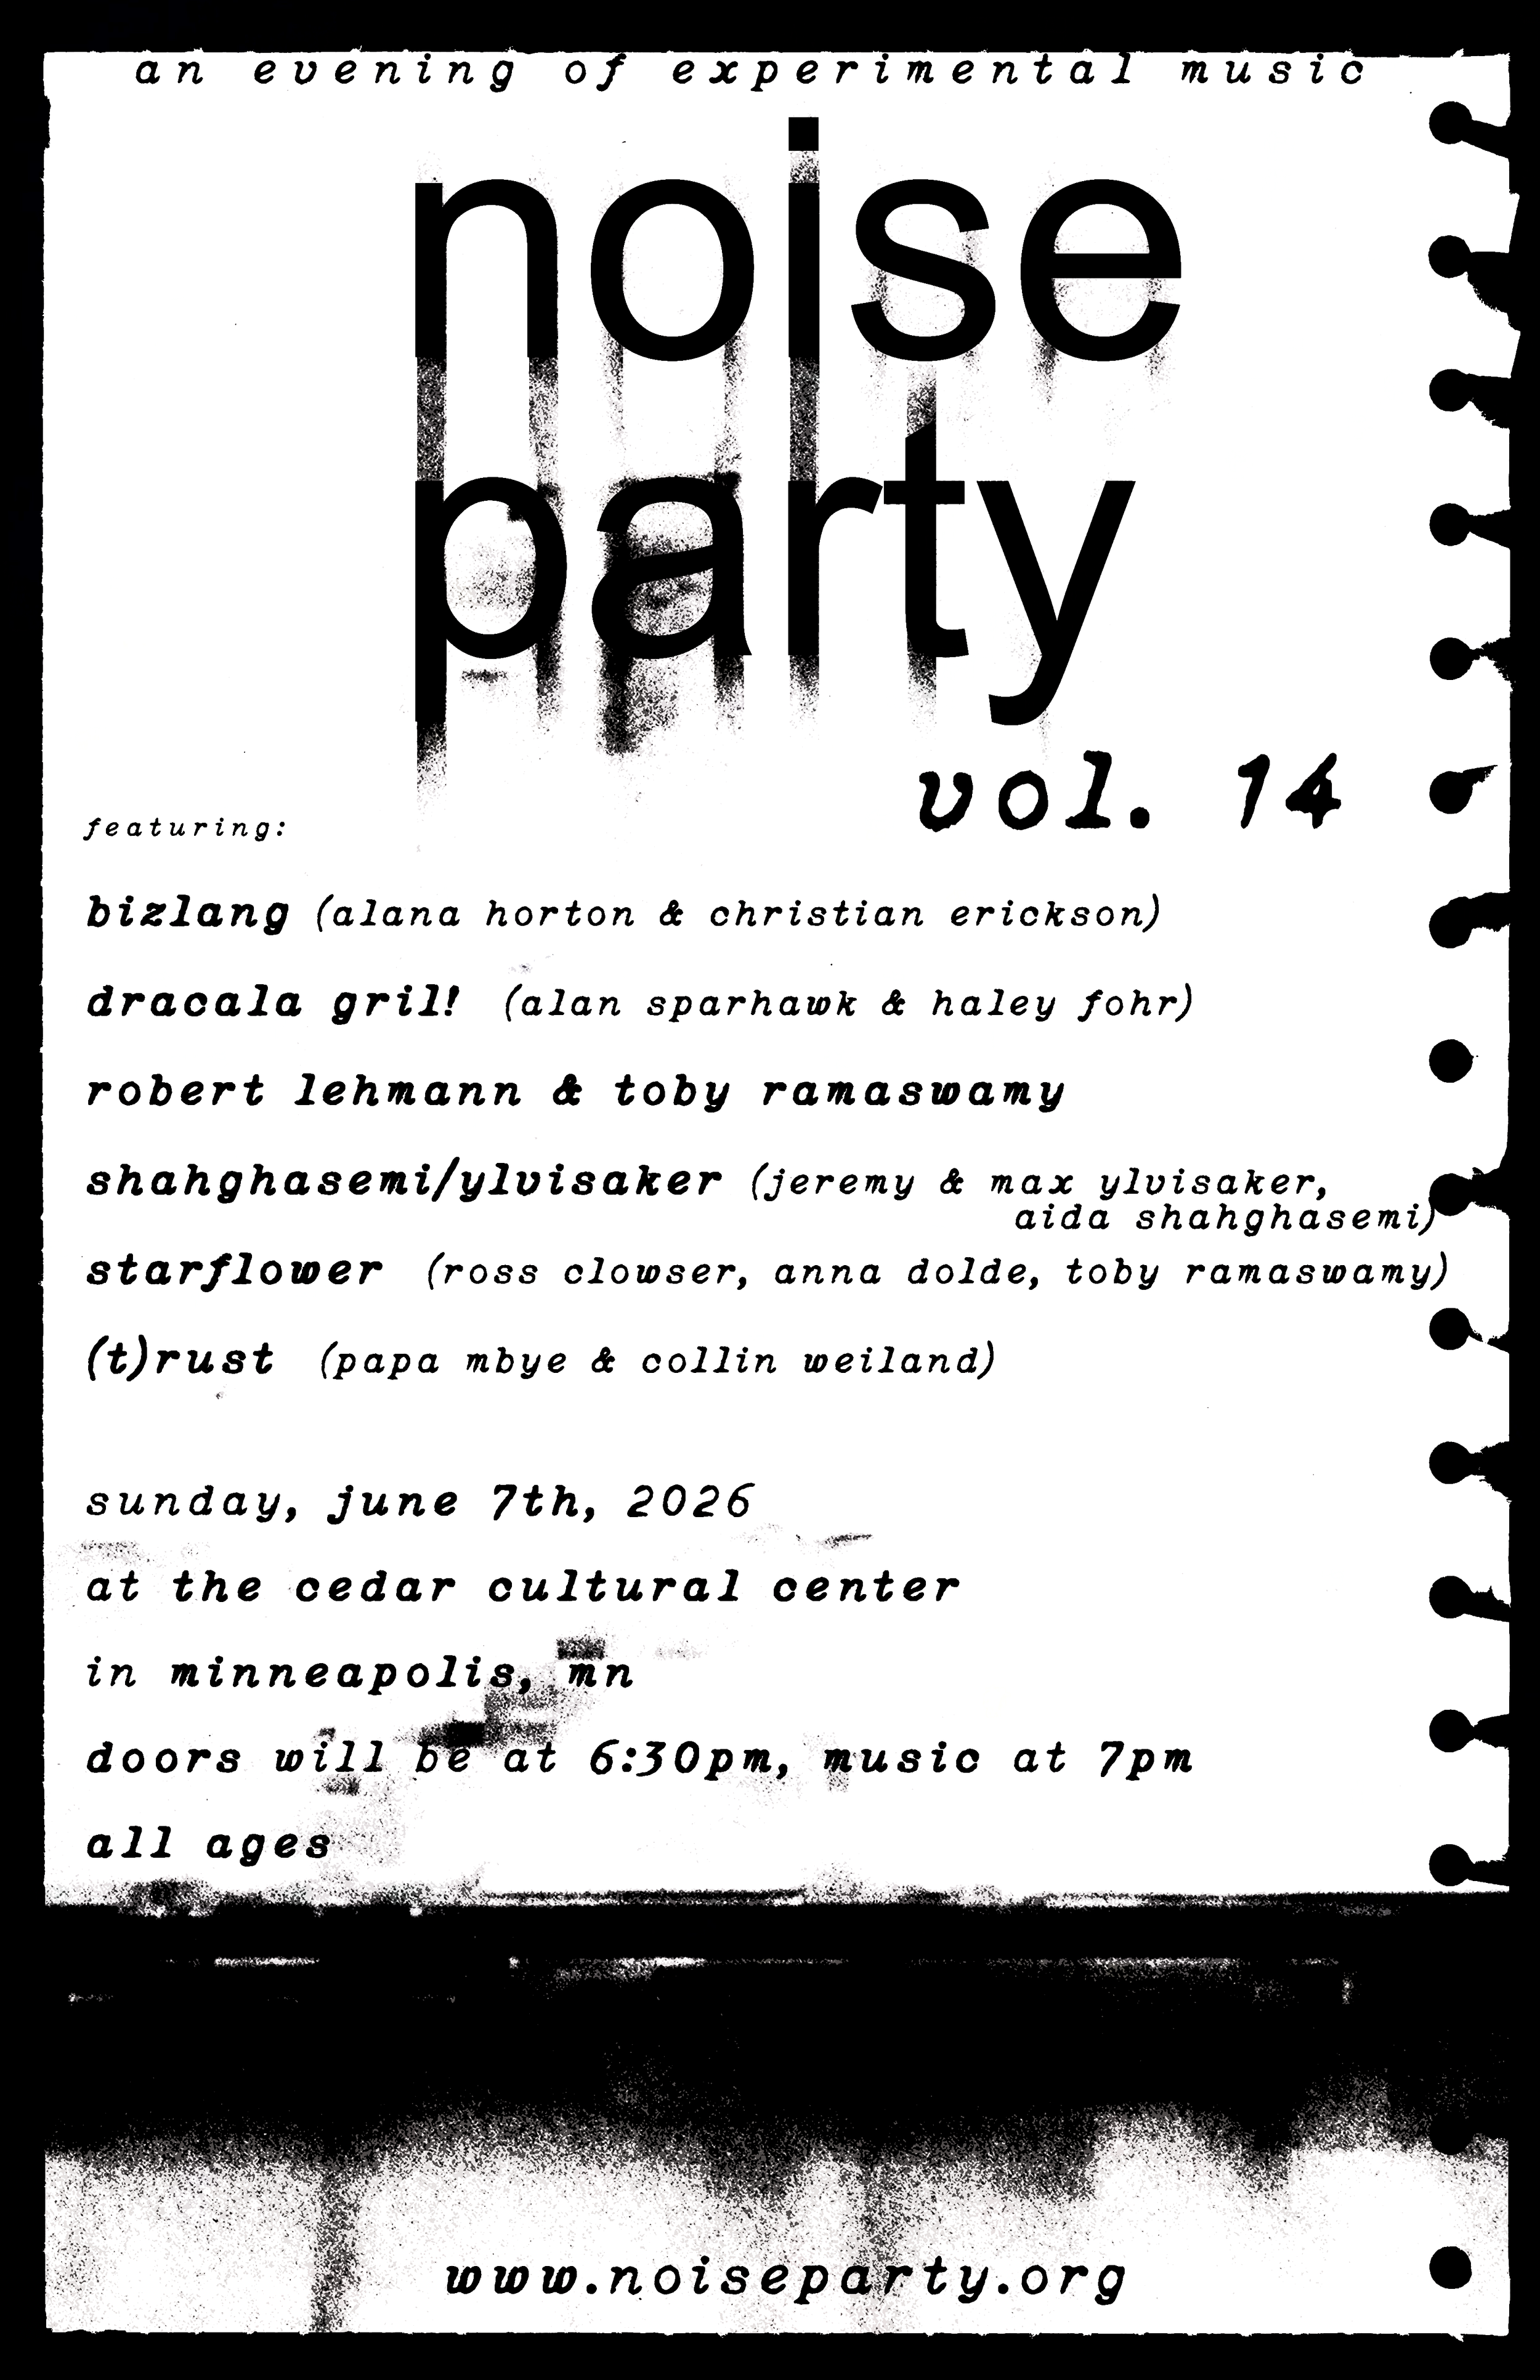 an evening of experimental music
noise
party
vol. 14
featuring:
bizlang (alana horton & christian erickson)
dracala gril! (alan sparhawk & haley fohr)
robert lehmann & toby ramaswamy
shahghasemi/ylvisaker (jeremy & max ylvisaker,
aida shahghasemi)
starflower (ross clowser, anna dolde, toby ramaswamy)
(t)rust (papa mbye & collin weiland)
sunday, june 7th, 2026
at the cedar cultural center
in minneapolis, mn
doors will be at 6:30pm, music at 7pm
all ages
www.noiseparty.org